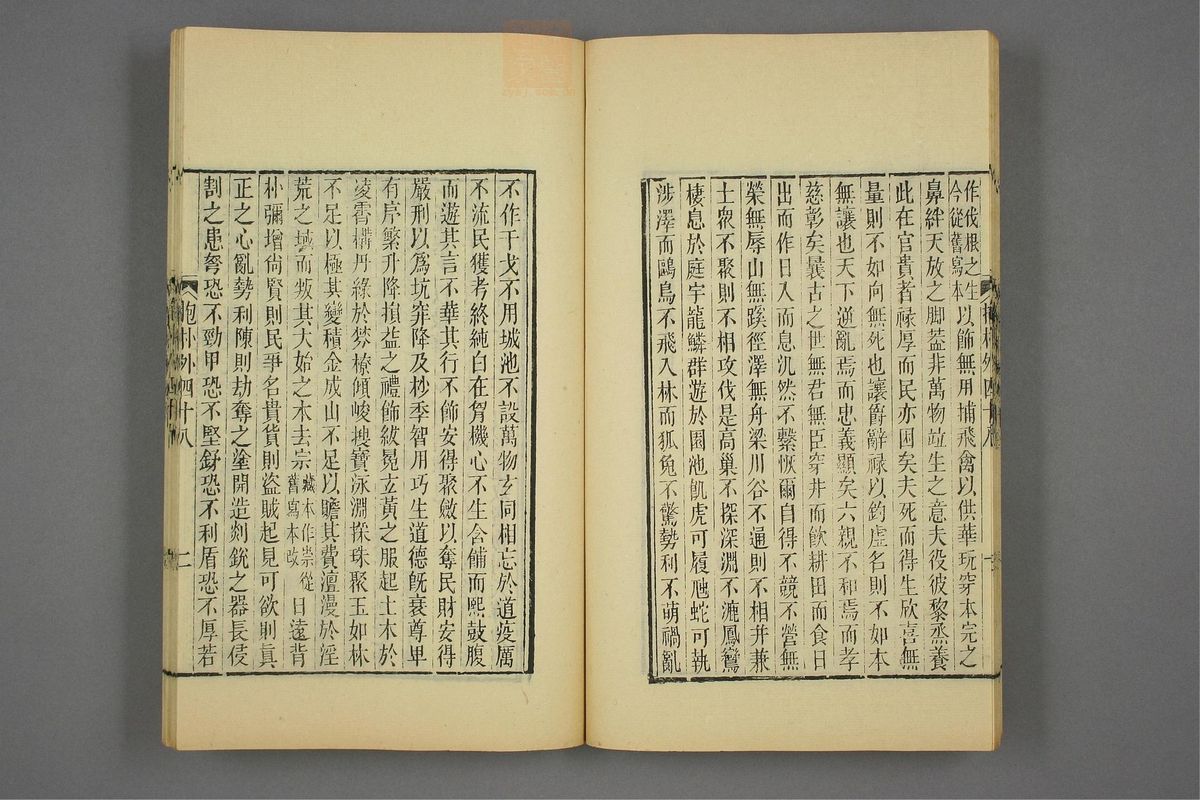 作伐根之生
今從舊寫本以飾無用捕飛禽以供華玩穿本完之
鼻絆天放之脚葢非萬物竝生之意夫役彼黎烝養
此在官貴者祿厚而民亦困矣夫死而得生欣喜無
量則不如向無死也讓爵辭祿以釣虛名則不如本
無讓也天下逆亂焉而忠義顯矣六親不和焉而孝
慈彰矣曩古之世無君無臣穿井而飮耕田而食日
出而作日入而息汎然不繫恢爾自得不競不營無
榮無辱山無蹊徑澤無舟梁川谷不通則不相幷兼
士衆不聚則不相攻伐是高巢不探深淵不漉鳳鸞
棲息於庭宇龍鱗群遊於園池飢虎可履虺蛇可執
涉澤而鷗鳥不飛入林而狐兔不驚勢利不萌禍亂
不作干戈不用城池不設萬物玄同相忘於道疫厲
不流民獲考終純白在胷機心不生含餔而熙鼓腹
而遊其言不華其行不飾安得聚斂以奪民財安得
嚴刑以爲坑穽降及杪季智用巧生道德旣衰尊卑
有序繁升降損益之禮飾紱冕玄黃之服起土木於
凌霄構丹綠於棼橑傾峻搜寶泳淵採珠聚玉如林
不足以極其變積金成山不足以贍其費澶漫於淫
荒之域而叛其大始之本去宗藏本作崇從舊寫本改日遠背
朴彌增尙賢則民爭名貴貨則盜賊起見可欲則眞
正之心亂勢利陳則劫奪之塗開造剡銳之器長侵
割之患弩恐不勁甲恐不堅鉾恐不利盾恐不厚若
抱朴外四十八
二